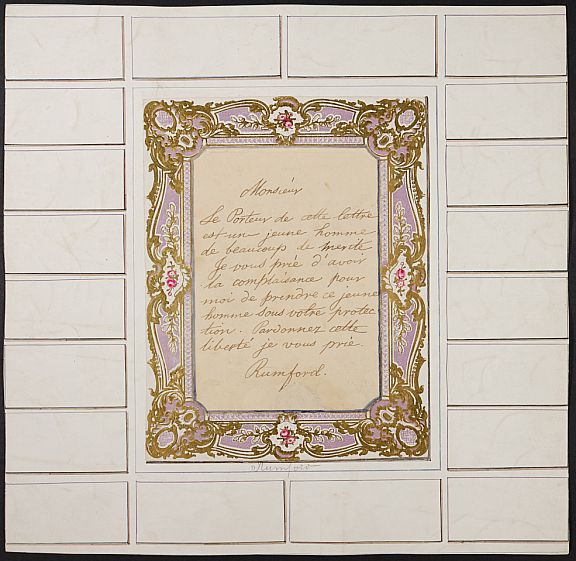 Monsieur
Le Porteur de cette lettre
est un jeune homme
de beaucoup de merite
Je vous prié d'avoir
la complaisance pour
moi de prendre ce jeune
homme sous votre protec
tion. Pardonnez cette
liberté je vous prie.
Rumford.
Rumford